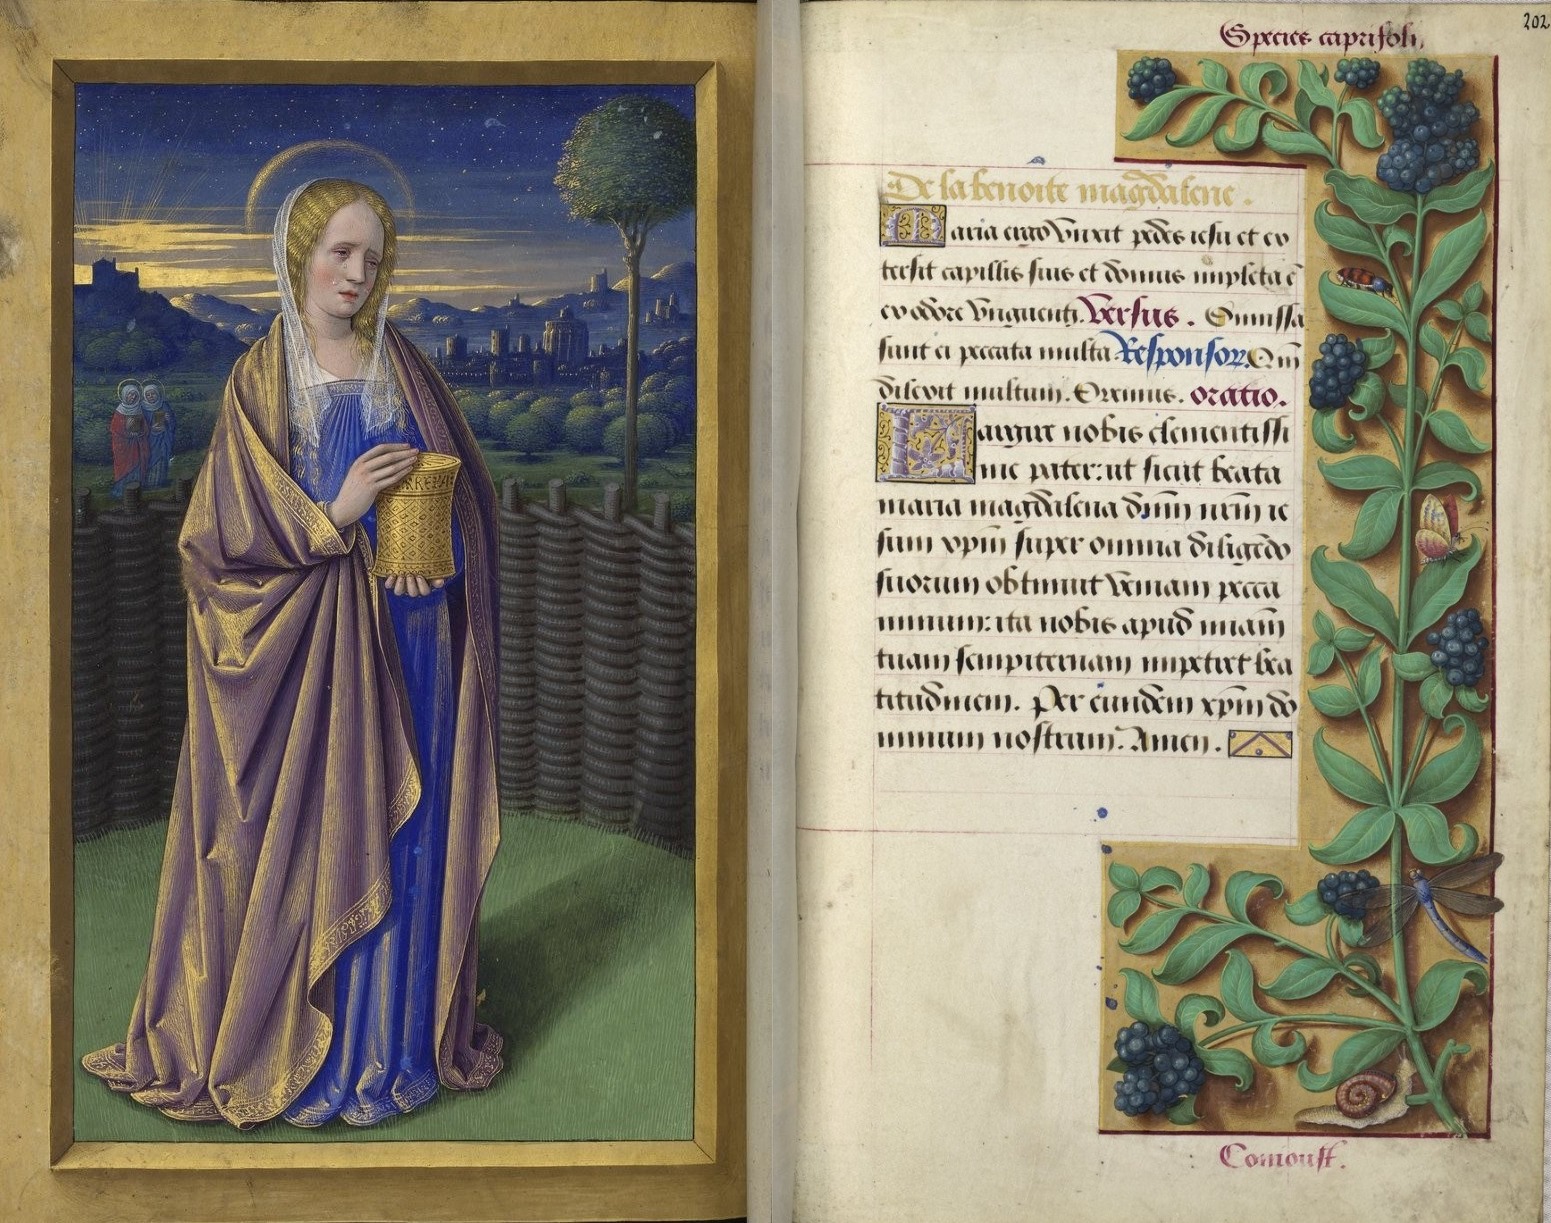 202
Species caprifolii
De la benoite magdalene.
Maria ergo unxit pedes iesu et ex
tersit capillis suis et domus impleta ē
ex odore unguenti. Versus. Dimissa
sunt ei peccata multa Responsor. Qm̄
dilexit multum. Oremus. oratio.
Largire nobis clementissi
me pater: ut sicut beata
maria magdalena dn̄m nr̄m ie
sum xp̄m super omnia diligēdo
suorum obtinuit veniam pecca
minum: ita nobis apud miam̄
tuam sempiternam impetret bea
titudinem. Per eundem xp̄m do
minum nostrum. Amen.